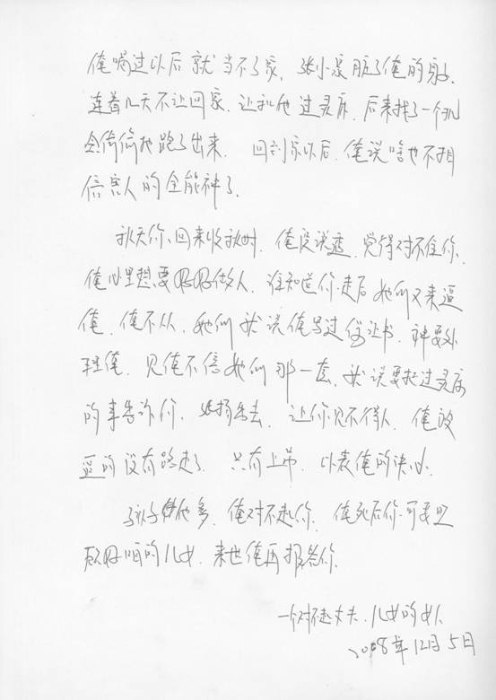 俺喝过以后就当不了家，张小泉脏了俺的身子
连着几天不让回家，让和他过灵床，后来找了一个机
会偷偷地跑了出来。回到家以后，俺说啥也不相
信害人的全能神了。
秋天你回来收秋时，俺没说透，觉得对不住你，
俺心里想要好好做人，谁知道你走后她们又来逼
俺，俺不从，她们就说俺写过保证书，神要处
理俺，见俺不信她们那一套，就说要把过灵床
的事告诉你，张扬出去，让你见不得人，俺被
逼的没有路走了，只有上吊，以表俺的决心。
俺对不起你，俺死后你可要照
顾好咱的儿女，来世俺再报答你。
一个对不起丈夫、儿女的女人
2008年12月5日